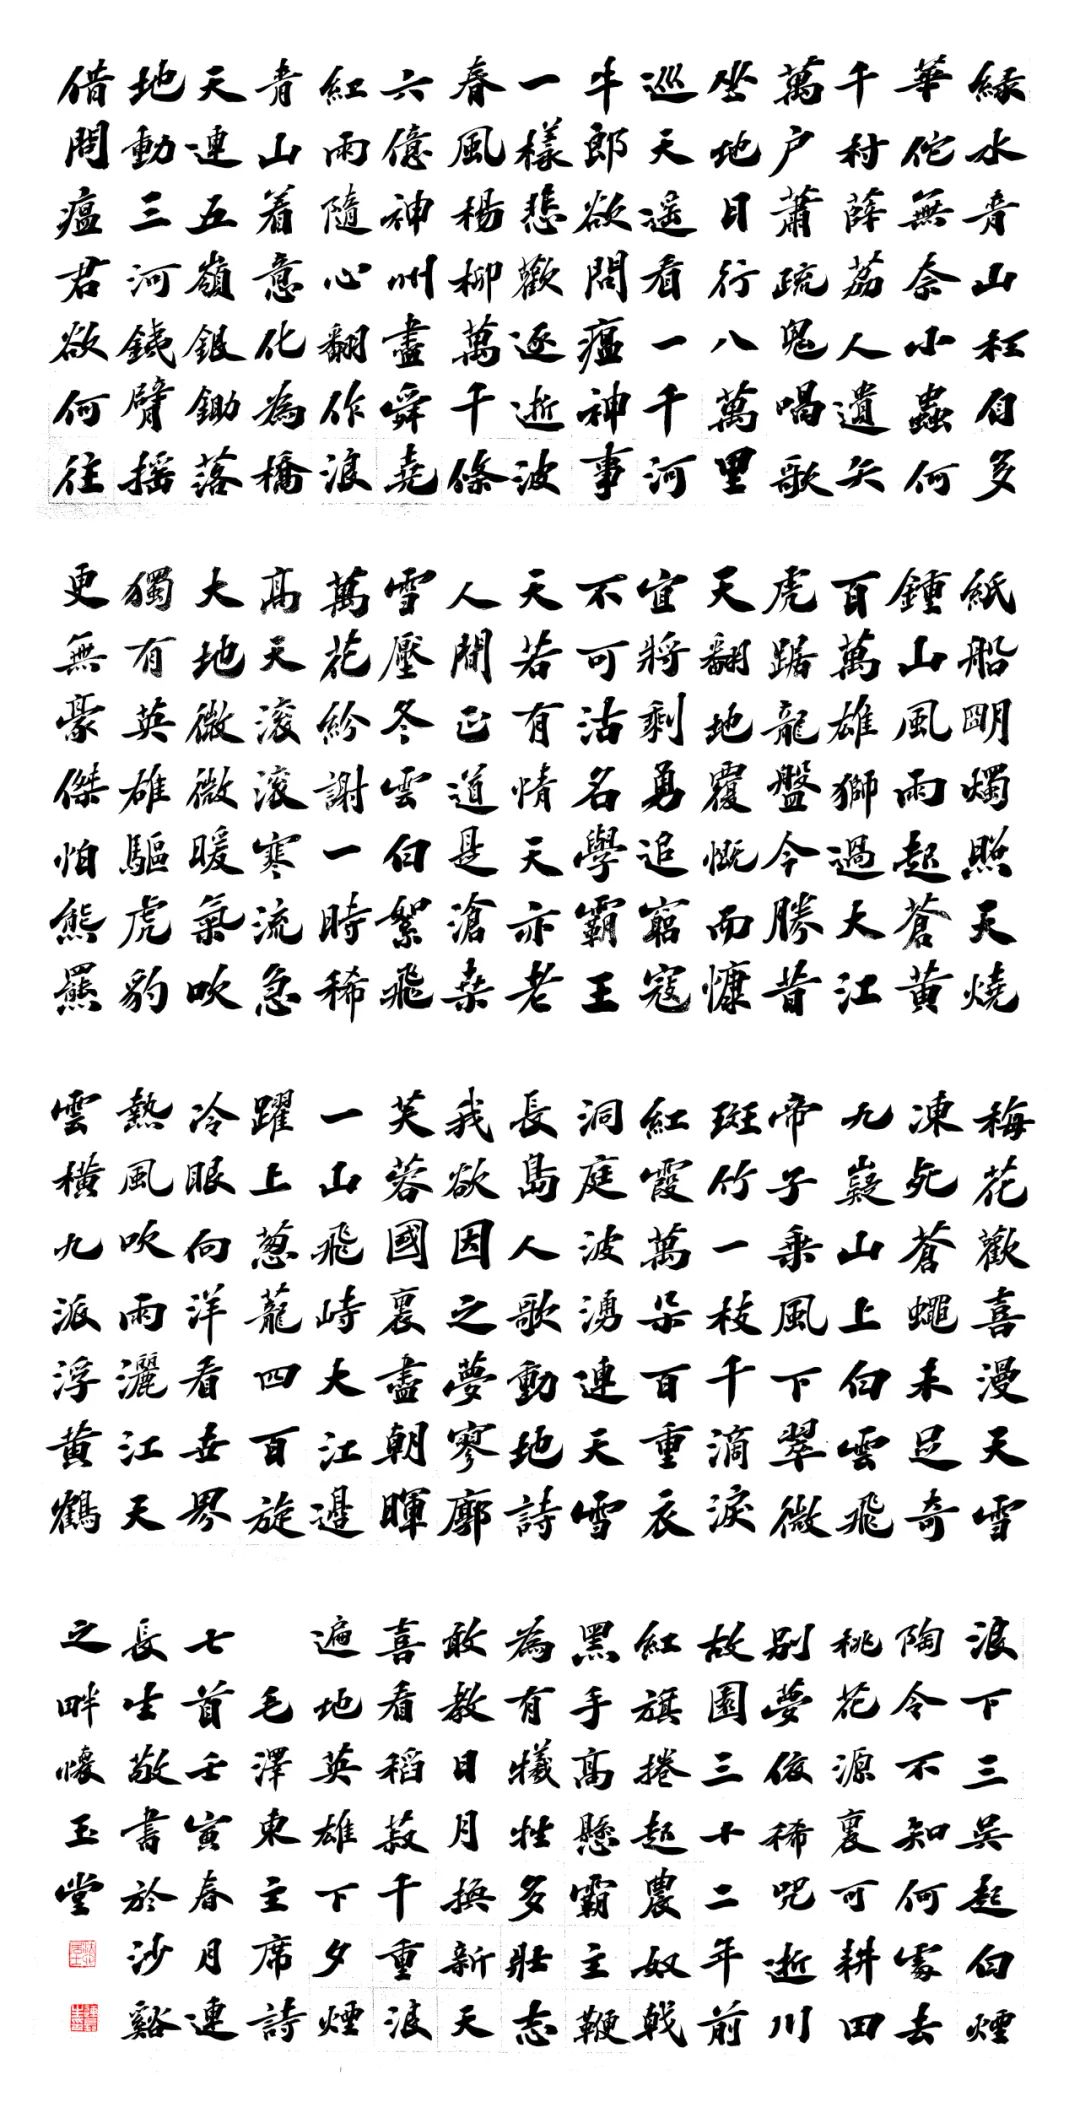 緑水青山枉自多
華佗無奈小蟲何
千村薜荔人遺矢
萬户蕭疏鬼唱歌
坐地日行八萬里
巡天遥看一千河
牛郎欲問瘟神事
一樣悲歡逐逝波
春風楊柳萬千條
六億神州盡舜堯
紅雨隨心翻作浪
青山着意化為橋
天連五嶺銀鋤落
地動三河鐵臂摇
借問瘟君欲何往
紙船明燭照天燒
鍾山風雨起蒼黄
百萬雄獅過大江
虎踞龍盤今勝昔
天翻地覆慨而慷
宜將剩勇追窮寇
不可沽名學霸王
天若有情天亦老
人間正道是滄桑
雪壓冬雲白絮飛
萬花紛謝一時稀
高天滚滚寒流急
大地微微暖氣吹
獨有英雄驅虎豹
更無豪傑怕熊羆
梅花歡喜漫天雪
凍死蒼蠅未足奇
九嶷山上白雲飛
帝子乘風下翠微
斑竹一枝千滴淚
紅霞萬朵百重衣
洞庭波湧連天雪
長島人歌動地詩
我欲因之夢寥廓
芙蓉國裏盡朝暉
一山飛峙大江邊
躍上葱蘢四百旋
冷眼向洋看世界
熱風吹雨灑江天
雲橫九派浮黄鶴
浪下三吳起白煙
陶令不知何處去
桃花源裏可耕田
别夢依稀咒逝川
故園三十二年前
紅旗捲起農奴戟
黑手高懸霸主鞭
為有犧牲多壯志
敢教日月換新天
喜看稻菽千重浪
遍地英雄下夕煙
毛澤東主席詩
七首壬寅春月連
長生敬書於沙谿
之畔懷玉堂